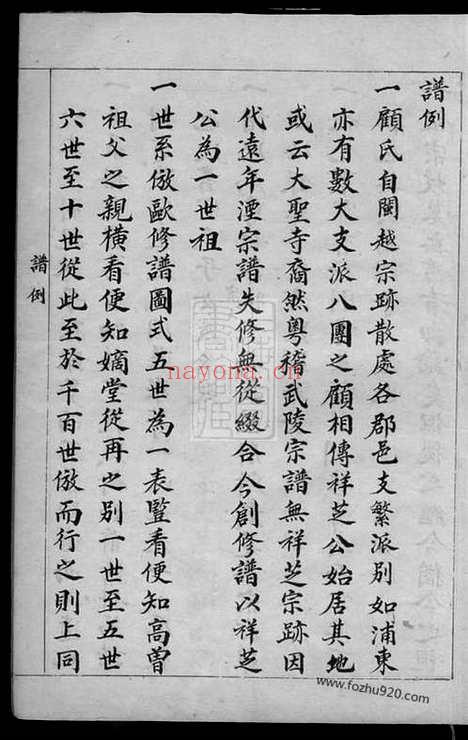 譜例
一顧氏自閩越宗跡散處各郡邑支繁派別如浦東
亦有數大支派八團之顧相傳祥芝公始居其地
或云大聖寺裔然粵稽武陵宗譜無祥芝宗跡因
代遠年湮宗譜失修無從綴合今創修譜以祥芝
公為一世祖
一世系倣歐修譜圖式五世為一表豎看便知高曾
祖父之親橫看便知嫡堂從再之別一世至五世
六世至十世從此至於千百世倣而行之則上同
譜例
nayona.cn
www.fozhu920.com